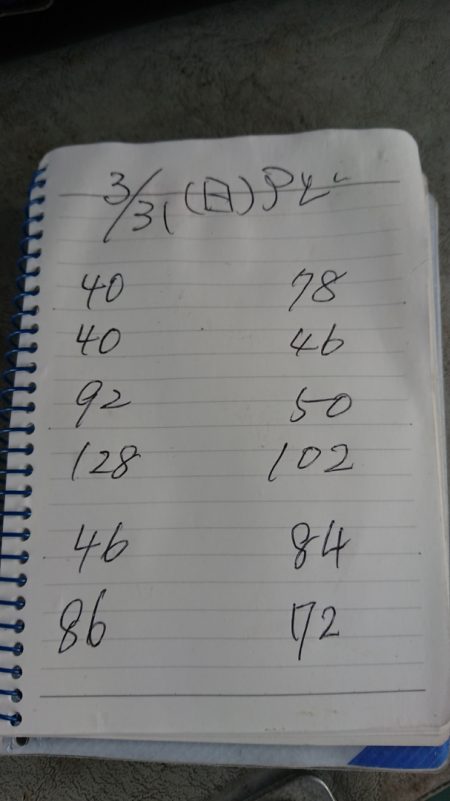 3/31 (日)
40 78
40 46
92 50
128 102
46 84
86 72